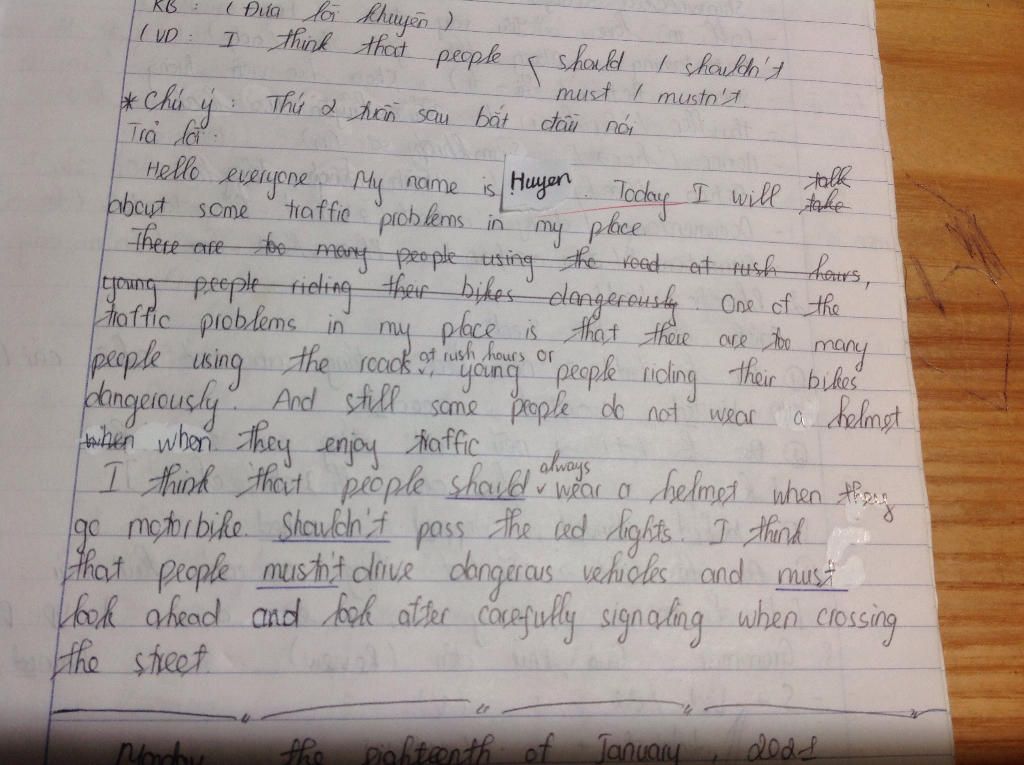 KB : ( Đưa lời khuyên )
( VD : I think that people { should / shouldn't
must / mustn't.
* Chú ý : Thứ 2 tuần sau bắt đầu nói
Trả lời :
Hello everyone My name is Huyen . Today I will talk take
about some traffic problems in my place
There are too many people using the road at rush hours,
young people riding their bikes dangerously . One of the
traffic problems in my place is that there are too many
people using the roads at rush hours or , young people riding their bikes
dangerously . And still some people do not wear a helmet
when when they enjoy traffic
I think that people should always wear a helmet when they
go motorbike. Shouldn't pass the red lights. I think
that people mustn't drive dangerous vehicles and must
look ahead and look after carefully signaling when crossing
the street.
Monday the eighteenth of January , 2021